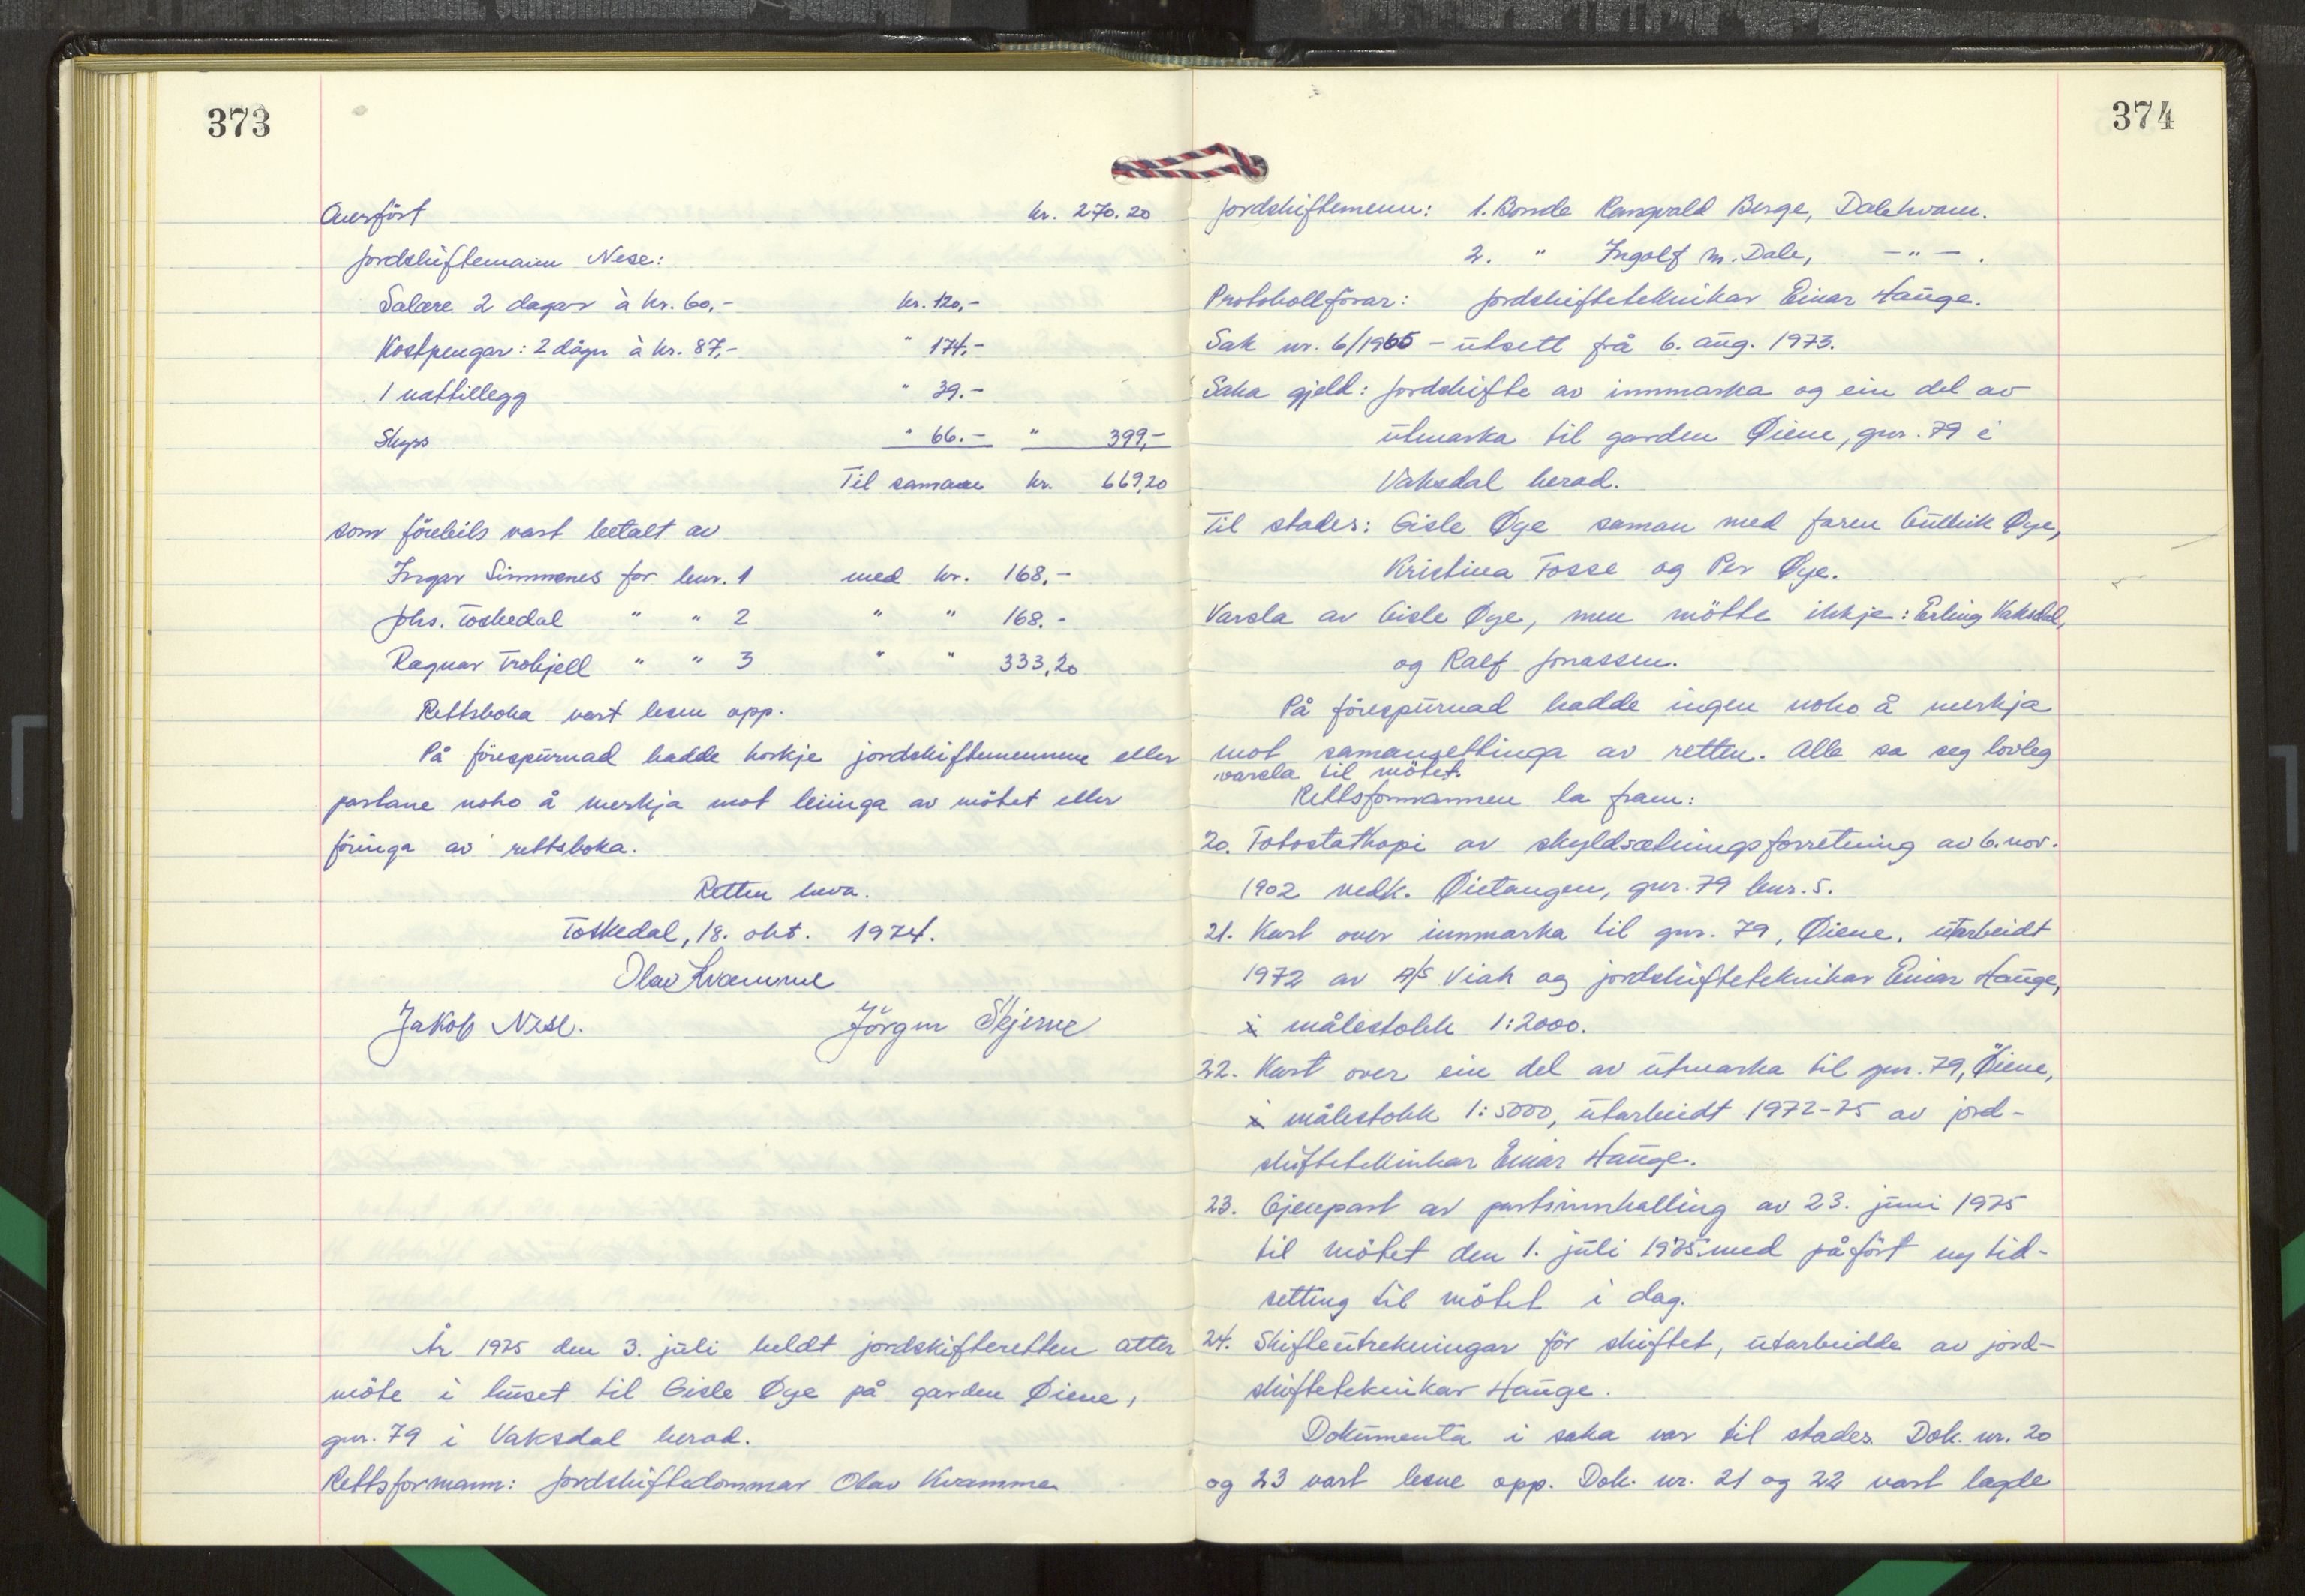 373
Overfört kr. 270.20
Jordskiftemann Nese:
Salære 2 dagar à kr. 60,- kr. 120,-
Kostpengar: 2 dögn à kr. 87,- " 174,-
1 nattillegg " 39.-
Skyss " 66.- " 399,-
Til saman kr. 669,20
som förebils vart betalt av
Ingar Simmenes for bnr. 1 med kr. 168,-
Johs. Toskedal " " 2 " " 168.-
Ragnar Trohjell " " 3 " " 333,20
Rettsboka vart lesen opp.
På förespurnad hadde korkje jordskiftemennene eller
partane noko å merkja mot leiinga av mötet eller
föringa av rettsboka.
Retten heva.
Toskedal, 18. okt. 1974.
Olav Kvamme
Jakob Nese. Jörgen Skjerve
År 1975 den 3. juli heldt jordskifteretten atter
möte i huset til Gisle Øye på garden Øiene,
gnr. 79 i Vaksdal herad.
Rettsformann: Jordskiftedommar Olav Kvamme
374
Jordskiftemenn: 1. Bonde Rangvald Berge, Dalekvam.
2. " Ingolf M. Dale, -"-.
Protokollförar: Jordskifteteknikar Einar Hauge.
Sak nr. 6/1965 - utsett frå 6. aug. 1973.
Saka gjeld: Jordskifte av innmarka og ein del av
utmarka til garden Øiene, gnr. 79 i
Vaksdal herad.
Til stades: Gisle Øye saman med faren Gullik Øye,
Kristina Fosse og Per Øye.
Varsla av Gisle Øye, men mötte ikkje: Erling Vaksdal,
og Ralf Jonassen.
På förespurnad hadde ingen noko å merkja
mot samansettinga av retten. Alle sa seg lovleg
varsla til mötet.
Rettsformannen la fram:
20. Fotostatkopi av skyldsetningsforretning av 6. nov.
1902 vedk. Øietangen, gnr. 79 bnr. 5.
21. Kart over innmarka til gnr. 79, Øiene, utarbeidt
1972 av A/S Viak og jordskifteteknikar Einar Hauge,
i målestokk 1:2000.
22. Kart over ein del av utmarka til gnr. 79, Øiene,
i målestokk 1:5000, utarbeidt 1972-75 av jord-
skifteteknikar Einar Hauge.
23. Gjenpart av partsinnkalling av 23. juni 1975
til mötet den 1. juli 1975 med påfört ny tid-
setting til mötet i dag.
24. Skifteutrekningar för skiftet, utarbeidde av jord-
skifteteknikar Hauge.
Dokumenta i saka var til stades. Dok. nr. 20
og 23 vart lesne opp. Dok. nr. 21 og 22 vart lagde